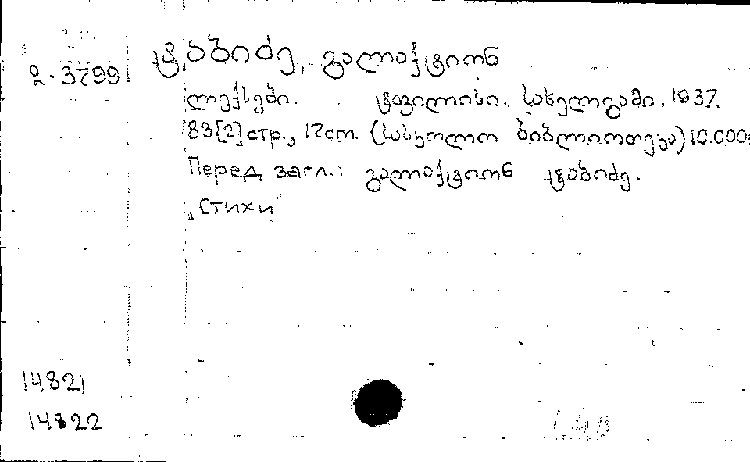 ტაბიძე, გალაქტიონ
2.3799
ლექსები. ტფილისი. სახელგამი, 1937.
83[2] стр., 17 cm. (სასკოლო ბიბლიოთეკა) 10.000
Перед загл.: გალაქტიონ ტაბიძე.
"Стихи"
14821
14822